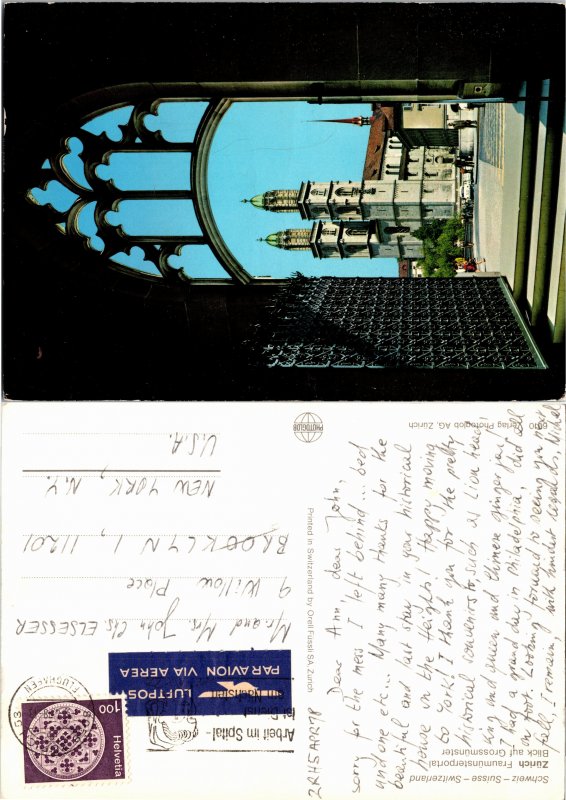 Schweiz – Suisse – Switzerland
Zürich Fraumünsterportal
Blick auf Grossmünster
Dear Ann dear John,
sorry for the mess I left behind ... bed
undone etc... Many many thanks for the
beautiful and last stay in your historical
house on the Heights! Happy moving
to Soho! I thank you for the pretty
historical souvenirs such as Lion head!
and and chinese ginger yan!
I had a grand day in Philadelphia, did all
on foot! Looking forward to seeing you next
fall, I remain with kindest regards, Michel
6910 Verlag Photoglob AG, Zürich
Printed in Switzerland by Orell Füssli SA Zürich
PHOTOGLOB
2RH5APR78
Arbeit im Spital –
ist Dienst
am Nächsten
FLUGHAFEN
LUFTPOST
PAR AVION VIA AEREA
100
Helvetia
Mr. and Mrs. John Chs ELSESSER
9 Willow Place
BROOKLYN 1, 11201
NEW YORK, N.Y.
U.S.A.